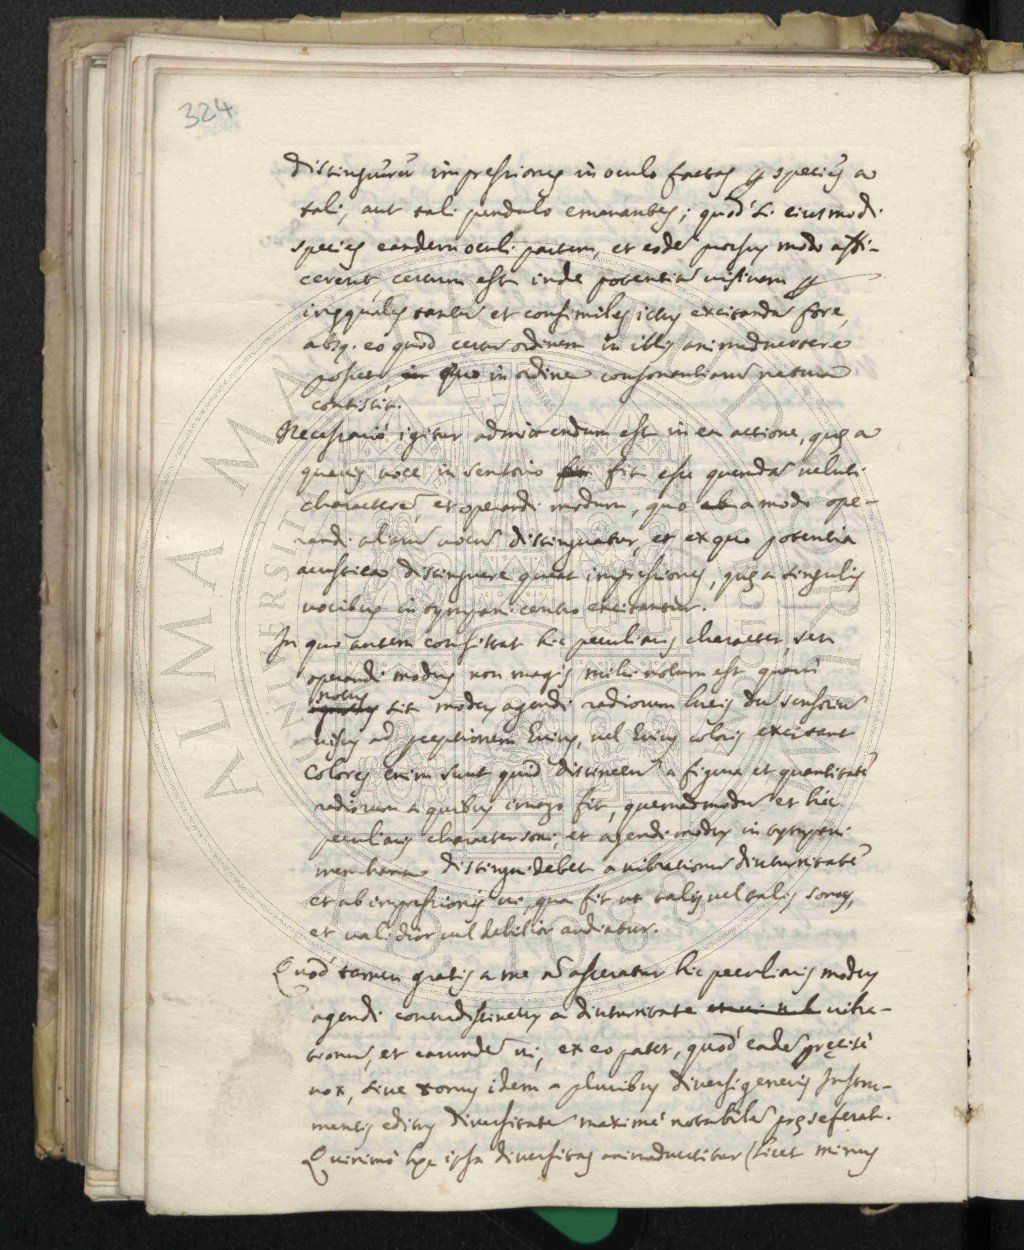 324
distinguerem impressiones in oculo factas ꝑ species a
tali, aut tali pendulo emanantes; quod si eiusmodi
species eandem oculi partem, et eodẽ prorsus modo affi-
cerent, certum est inde potentiã visivam ꝑ
inęquales tantũ et consimiles ictus excitandã fore,
absq. eo quod certũ ordinem in illis animadvertere
posset, in quo in ordine consonantiarũ natura
consistit.
Necessariò igitur admittendum est in ea actione, quę a
quavis voce in sensorio fit esse quendã veluti
characterẽ, et operandi modum, quo a modo ope-
randi aliarũ vocũ distinguatur, et ex quo potentia
acustica distinguere queat impressiones, quę a singulis
vocibus in tympani centro excitantur.
In quo autem consistat hic peculiaris character, seu
operandi modus non magis mihi notum est quam
notus
ignotus sit modus agendi radiorum lucis dũ sensoriũ
visus ad ꝑceptionem huius, vel huius coloris excitant
Colores enim sunt quid distinctũ a figura et quantitate
radiorum a quibus imago fit, quemadmodũ et hic
peculiaris character soni, et agendi modus in tympani
membrana distingui debet a vibrationũ diuturnitate
et ab impressionis vi, qua fit ut talis vel talis sonus,
et validior vel debilior audiatur.
Quod tamen gratis a me nõ asseratur hic peculiaris modus
agendi contradistinctus a diuturnitate et vi vel vibra-
tionũ, et earundẽ vi, ex eo patet, quod eadẽ pręcisè
vox, sive tonus idem a pluribus diversi generis Instru-
mentis editus diversitatẽ maximè notabilẽ pręseferat.
Quinimò hęc ipsa diversitas animadvertitur (licet minus